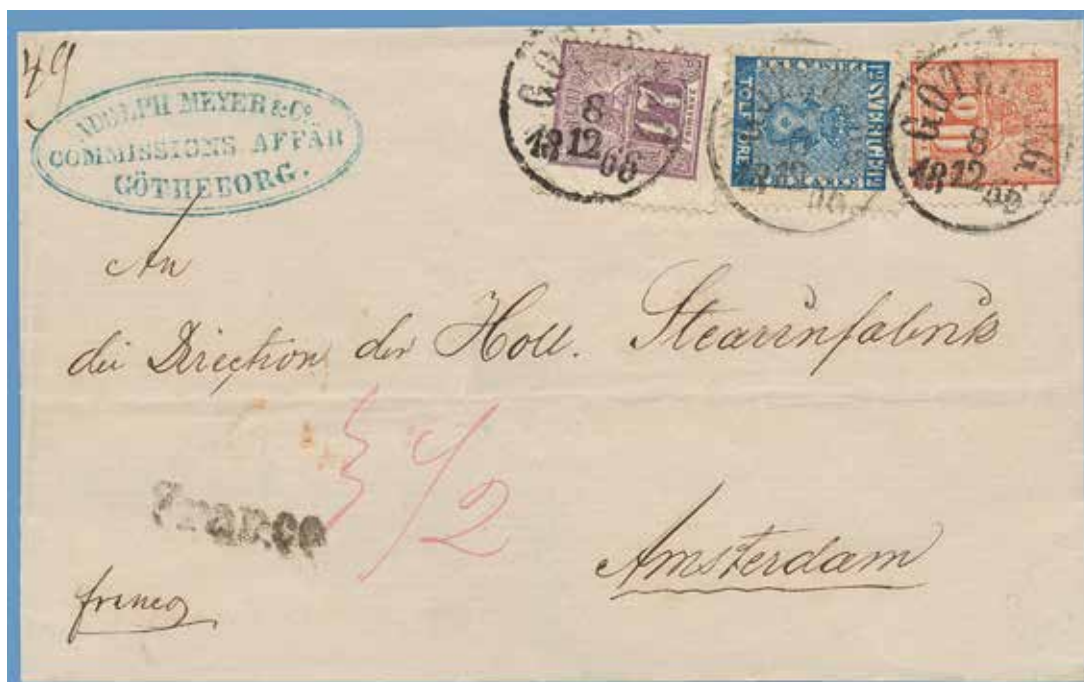 49
ADOLPH MEYER & Co.
COMMISSIONS AFFÄR
GÖTHEBORG.
8
18 12 66
17
TOLF ÖRE
SVERIGE
8
18 12 66
An
die Direction der Holl. Stearinfabrik
3/2
Franco
Amsterdam
franco